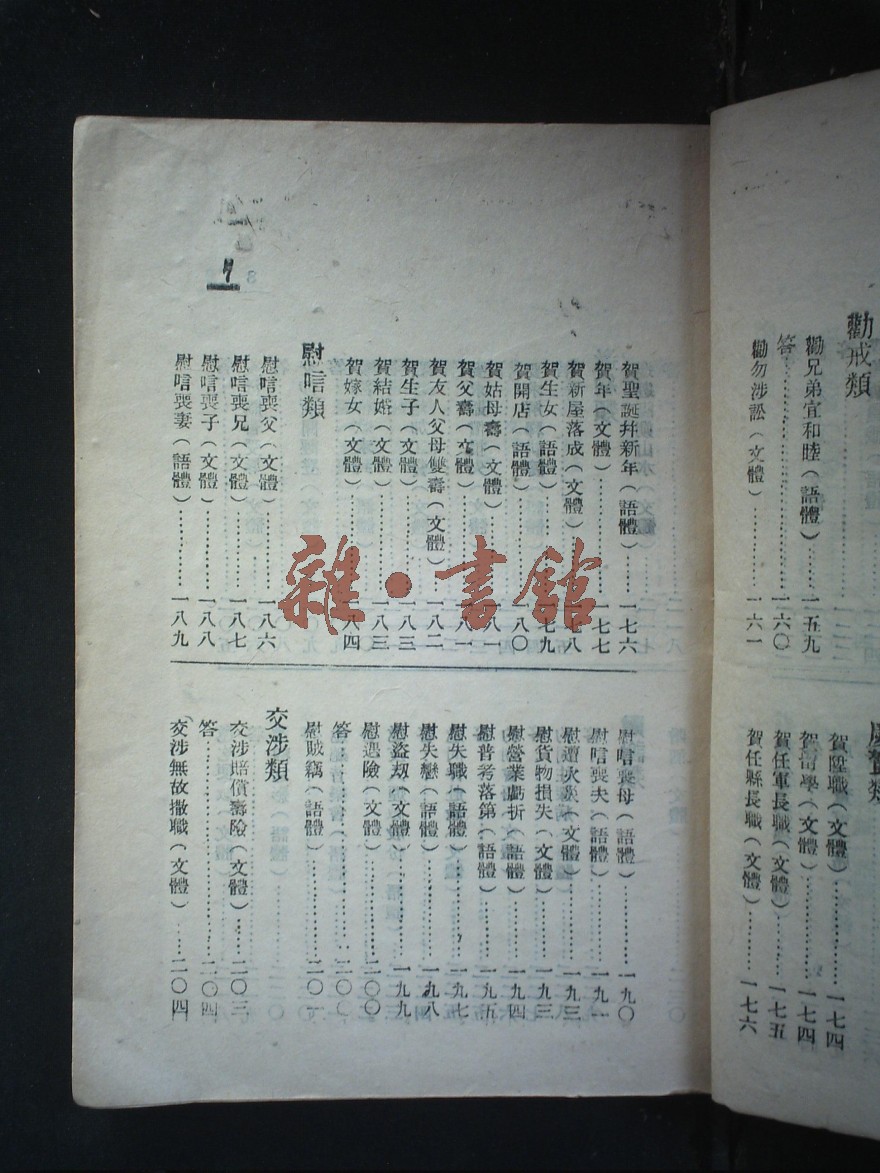 勸戒類
勸兄弟宜和睦（語體）……一五九
答……一六〇
勸勿涉訟（文體）……一六一
賀陞職（文體）……一七四
賀任軍長職（文體）……一七五
賀任縣長職（文體）……一七六
賀聖誕并新年（語體）……一七六
賀年（文體）……一七七
賀新屋落成（文體）……一七八
賀生女（語體）……一七九
賀開店（語體）……一八〇
賀姑母壽（文體）……一八一
賀父壽（文體）……一八一
賀友人父母雙壽（文體）……一八二
賀生子（文體）……一八三
賀結婚（文體）……一八三
賀嫁女（文體）……一八四
慰唁類
慰唁喪父（文體）……一八六
慰唁喪兄（文體）……一八七
慰唁喪子（文體）……一八八
慰唁喪妻（語體）……一八九
慰唁喪母（語體）……一九〇
慰唁喪夫（語體）……一九一
慰遭火災（文體）……一九三
慰貨物損失（文體）……一九三
慰營業虧折（語體）……一九四
慰普考落第（語體）……一九五
慰失職（語體）……一九七
慰失戀（語體）……一九八
慰盜劫（文體）……一九九
慰遇險（文體）……二〇〇
答……二〇〇
慰賊竊（語體）……二〇一
交涉類
交涉賠償壽險（文體）……二〇三
答……二〇四
交涉無故撤職（文體）……二〇四
7
雜·書館